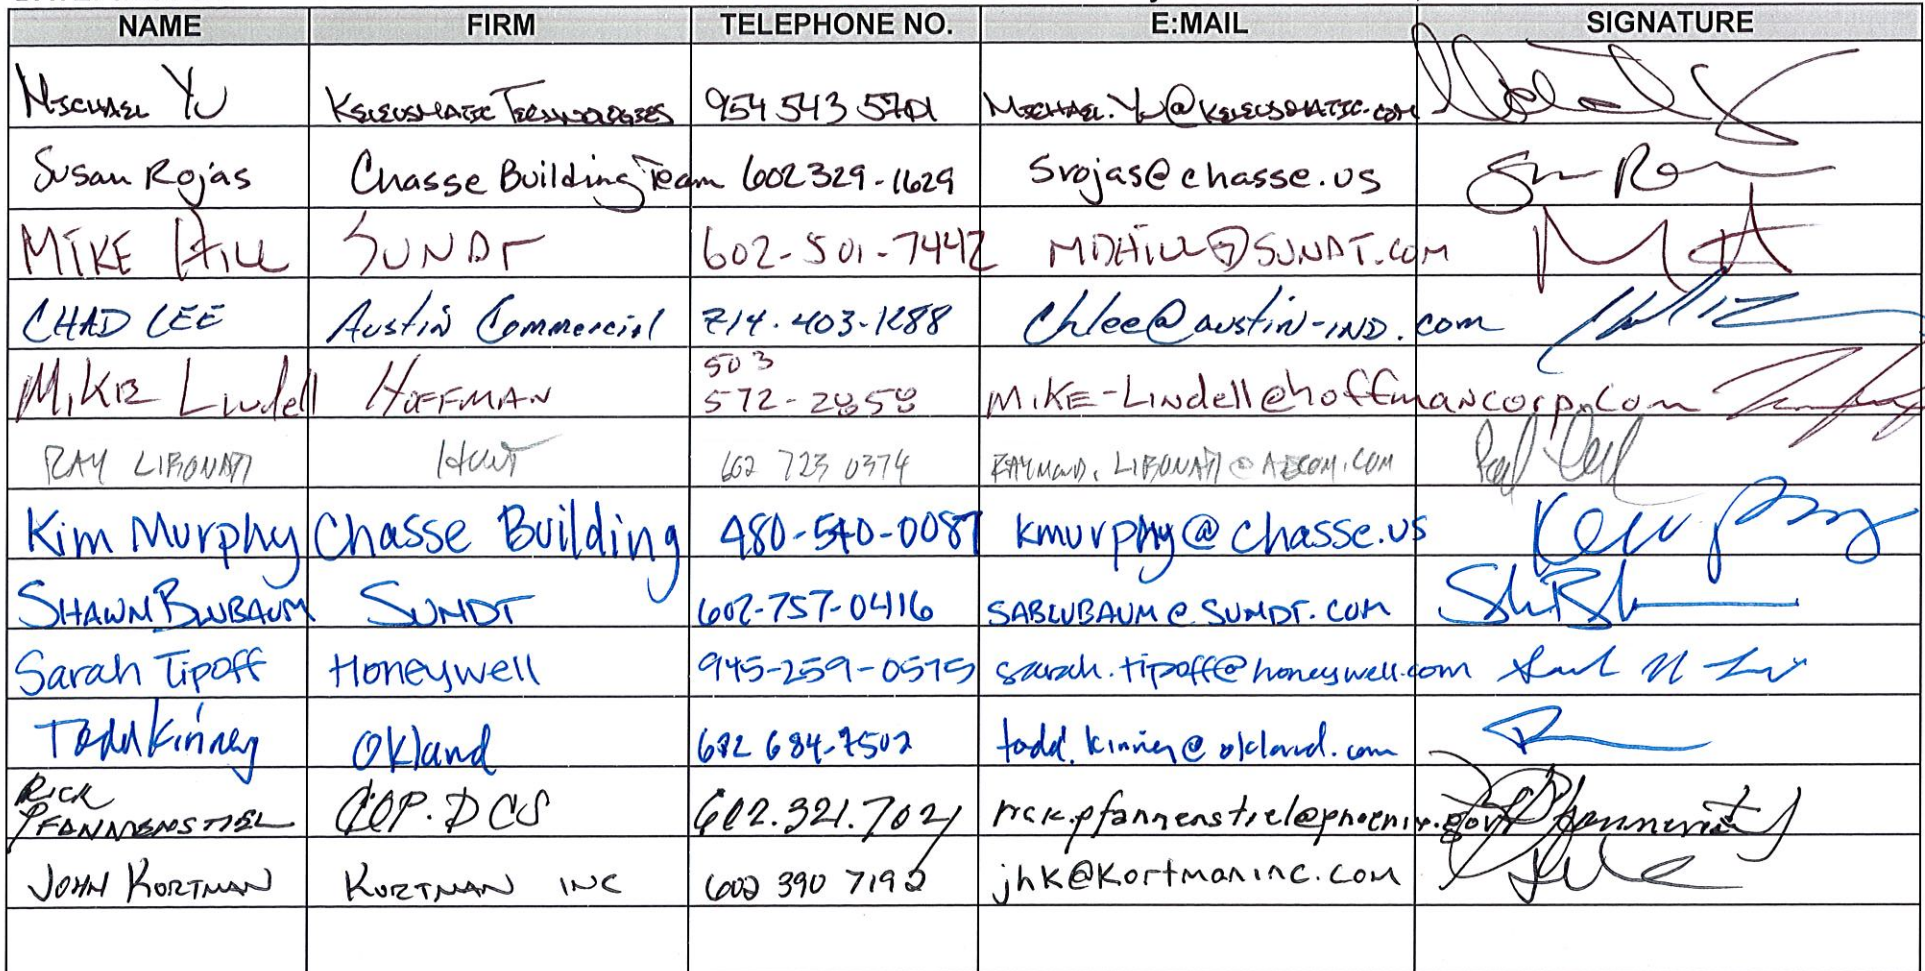 NAME FIRM TELEPHONE NO. E:MAIL SIGNATURE
MICHAEL YU KELEUSMATIC TECHNOLOGIES 954 543 5701 MICHAEL.YU@KELEUSMATIC.COM
Susan Rojas Chasse Building Team 602 329-1629 srojas@chasse.us
MIKE HILL SUNDT 602-501-7442 MDHILL@SUNDT.COM
CHAD LEE Austin Commercial 714.403.1288 Chlee@austin-IND.com
MIKE Lindell HOFFMAN 503
572-2858 MIKE-Lindell@hoffmancorp.com
RAY LIBONATI HUNT 602 723 0374 RAYMOND.LIBONATI@AECOM.COM
Kim Murphy Chasse Building 480-540-0087 kmurphy@chasse.us
SHAWN BLUBAUM SUNDT 602-757-0416 SABLUBAUM@SUNDT.COM
Sarah Tipoff Honeywell 945-259-0575 sarah.tipoff@honeywell.com
Todd Kinney Okland 602 684-7502 todd.kinney@okland.com
RICK
PFANNENSTIEL COP.DCS 602.321.7021 rick.pfannenstiel@phoenix.gov
JOHN KORTMAN KORTMAN INC 602 390 7192 jhk@Kortmaninc.com